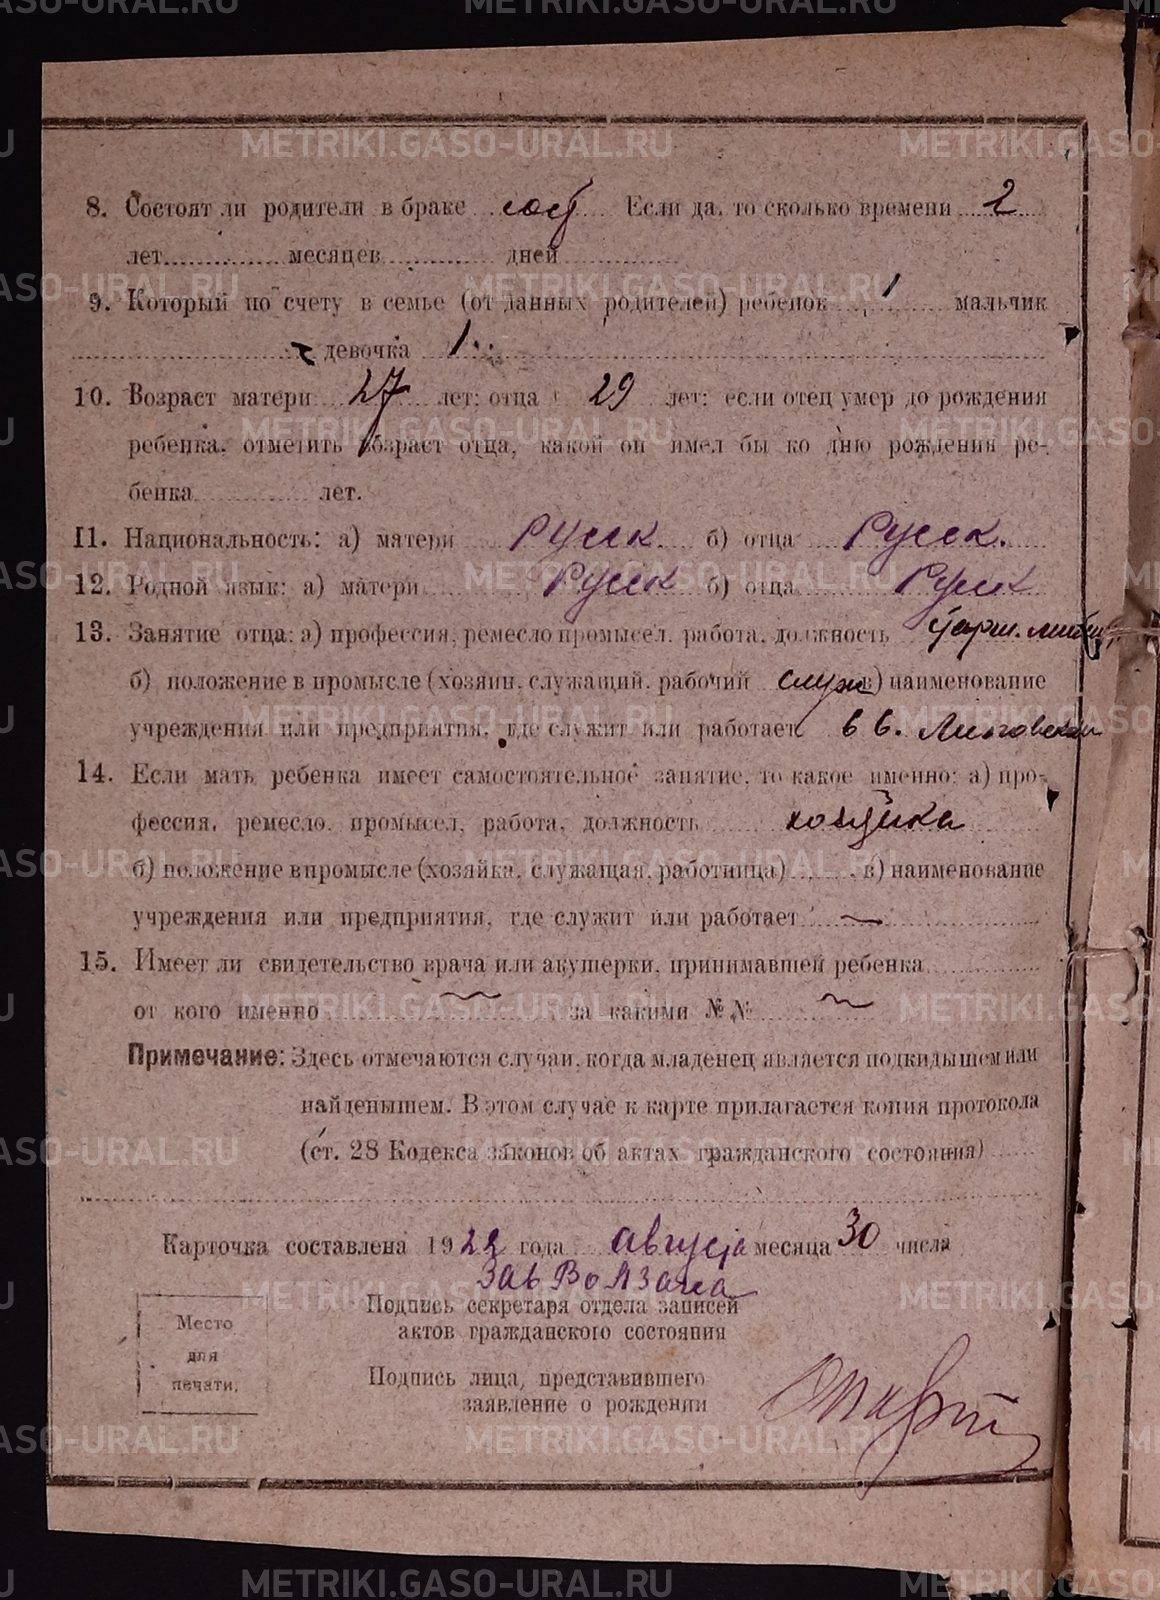 8. Состоят ли родители в браке сост Если да, то сколько времени 2
лет месяцев дней
9. Который по счету в семье (от данных родителей) ребенок 1 мальчик
девочка 1
10. Возраст матери 27 лет: отца 29 лет: если отец умер до рождения
ребенка, отметить возраст отца, какой он имел бы ко дню рождения ре-
бенка лет.
11. Национальность: а) матери Русск. б) отца Русск.
12. Родной язык: а) матери Русск б) отца Русск
13. Занятие отца: а) профессия, ремесло промысел, работа, должность
б) положение в промысле (хозяин, служащий, рабочий служ в) наименование
учреждения или предприятия, где служит или работает
14. Если мать ребенка имеет самостоятельное занятие, то какое именно: а) про-
фессия, ремесло, промысел, работа, должность хозяйка
б) положение в промысле (хозяйка, служащая, работница) в) наименование
учреждения или предприятия, где служит или работает
15. Имеет ли свидетельство врача или акушерки, принимавшей ребенка
от кого именно за какими №№
Примечание: Здесь отмечаются случаи, когда младенец является подкидышем или
найденышем. В этом случае к карте прилагается копия протокола
(ст. 28 Кодекса законов об актах гражданского состояния)
Карточка составлена 1922 года августа месяца 30 числа
Зав
Подпись секретаря отдела записей
актов гражданского состояния
Место
для
печати.
Подпись лица, представившего
заявление о рождении
METRIKI.GASO-URAL.RU